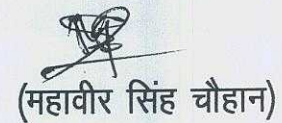 (महावीर सिंह चौहान)